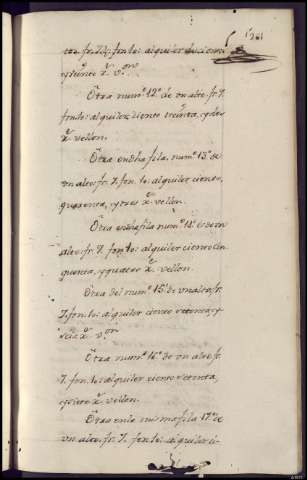 fr. 7. fon. to: alquiler
y veinte Rˢ. v.ᵒⁿ
Otra num.º 12º de vn alto fr. 7.
fon. to: alquiler ciento treinta, y dos
Rˢ vellon.
Otra en dha fila, num.º 13º de
vn alto, fr. 7. fon. to: alquiler ciento,
quarenta, y tres Rˢ vellon.
Otra en dha fila num.º 14º de vn
alto, fr. 7. fon. to: alquiler ciento cin
quenta, y quatro Rˢ vellon.
Otra del num.º 15º de vn alto, fr.
7. fon. to: alquiler ciento setenta, y
seis Rˢ v.ᵒⁿ
Otra num.º 16º de vn alto fr.
7. fon. to: alquiler ciento setenta,
y siete Rˢ vellon.
Otra en la misma fila 17º de
vn alto. fr. 7. fon. to: alquiler ci-